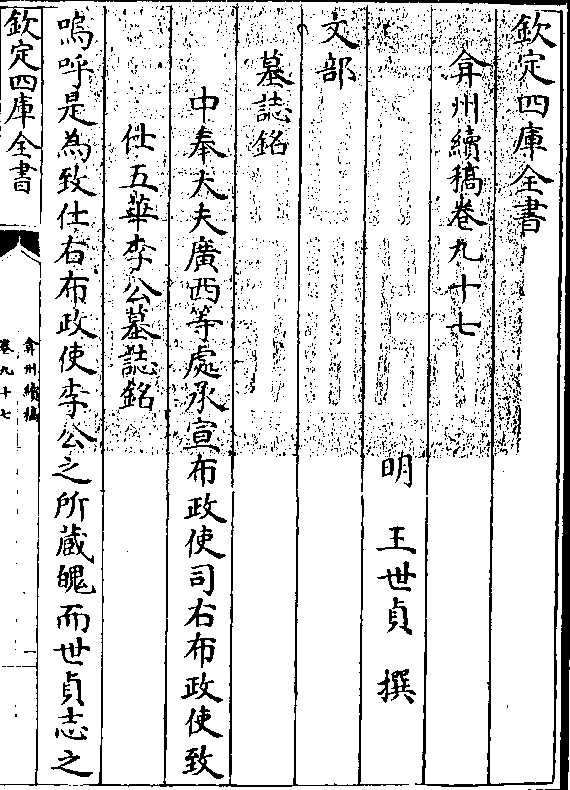 欽定四庫全書
弇州續稿卷九十七
明　王世貞　撰
文部
墓誌銘
中奉大夫廣西等處承宣布政使司右布政使致
仕五華李公墓誌銘
嗚呼是為致仕右布政使李公之所藏魄而世貞志之
欽定四庫全書
弇州續稿
卷九十七
一